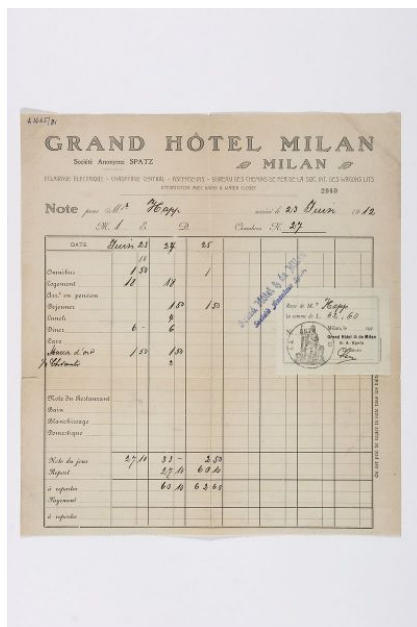 GRAND HÔTEL MILAN
Société Anonyme SPATZ MILAN
ECLAIRAGE ELECTRIQUE - CHAUFFAGE CENTRAL - ASCENSEURS - BUREAU DES CHEMINS DE FER DE LA SOC. INT. DES WAGONS LITS
APPARTEMENTS AVEC BAINS & WATER CLOSET
2040
Note pour Mr. Happ. arrivé le 23 Juin 1912
M. 1 E. D. Chambre N. 27
DATE Juin 23 24 25
Omnibus 1 50 1
Logement 18 18
Arr.t en pension
Déjeuner 1 50 1 50
Lunch 4
Dîner 6 - 6
Cave
1 50 1 50
Chianti 2
Note du Restaurant
Bain
Blanchissage
Domestique
Note du jour 27 10 33 - 2 50
Report 27 10 60 10
à reporter 60 10 62 60
Payement
à reporter
Grand Hôtel & de Milan
Société Anonyme Spatz
Happ
La somme de L. 62,60
Milano, le 191
Grand Hôtel & de Milan
S. A. Spatz